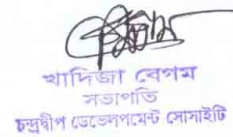 খাদিজা বেগম
সভাপতি
চন্দ্রদ্বীপ ডেভেলপমেন্ট সোসাইটি